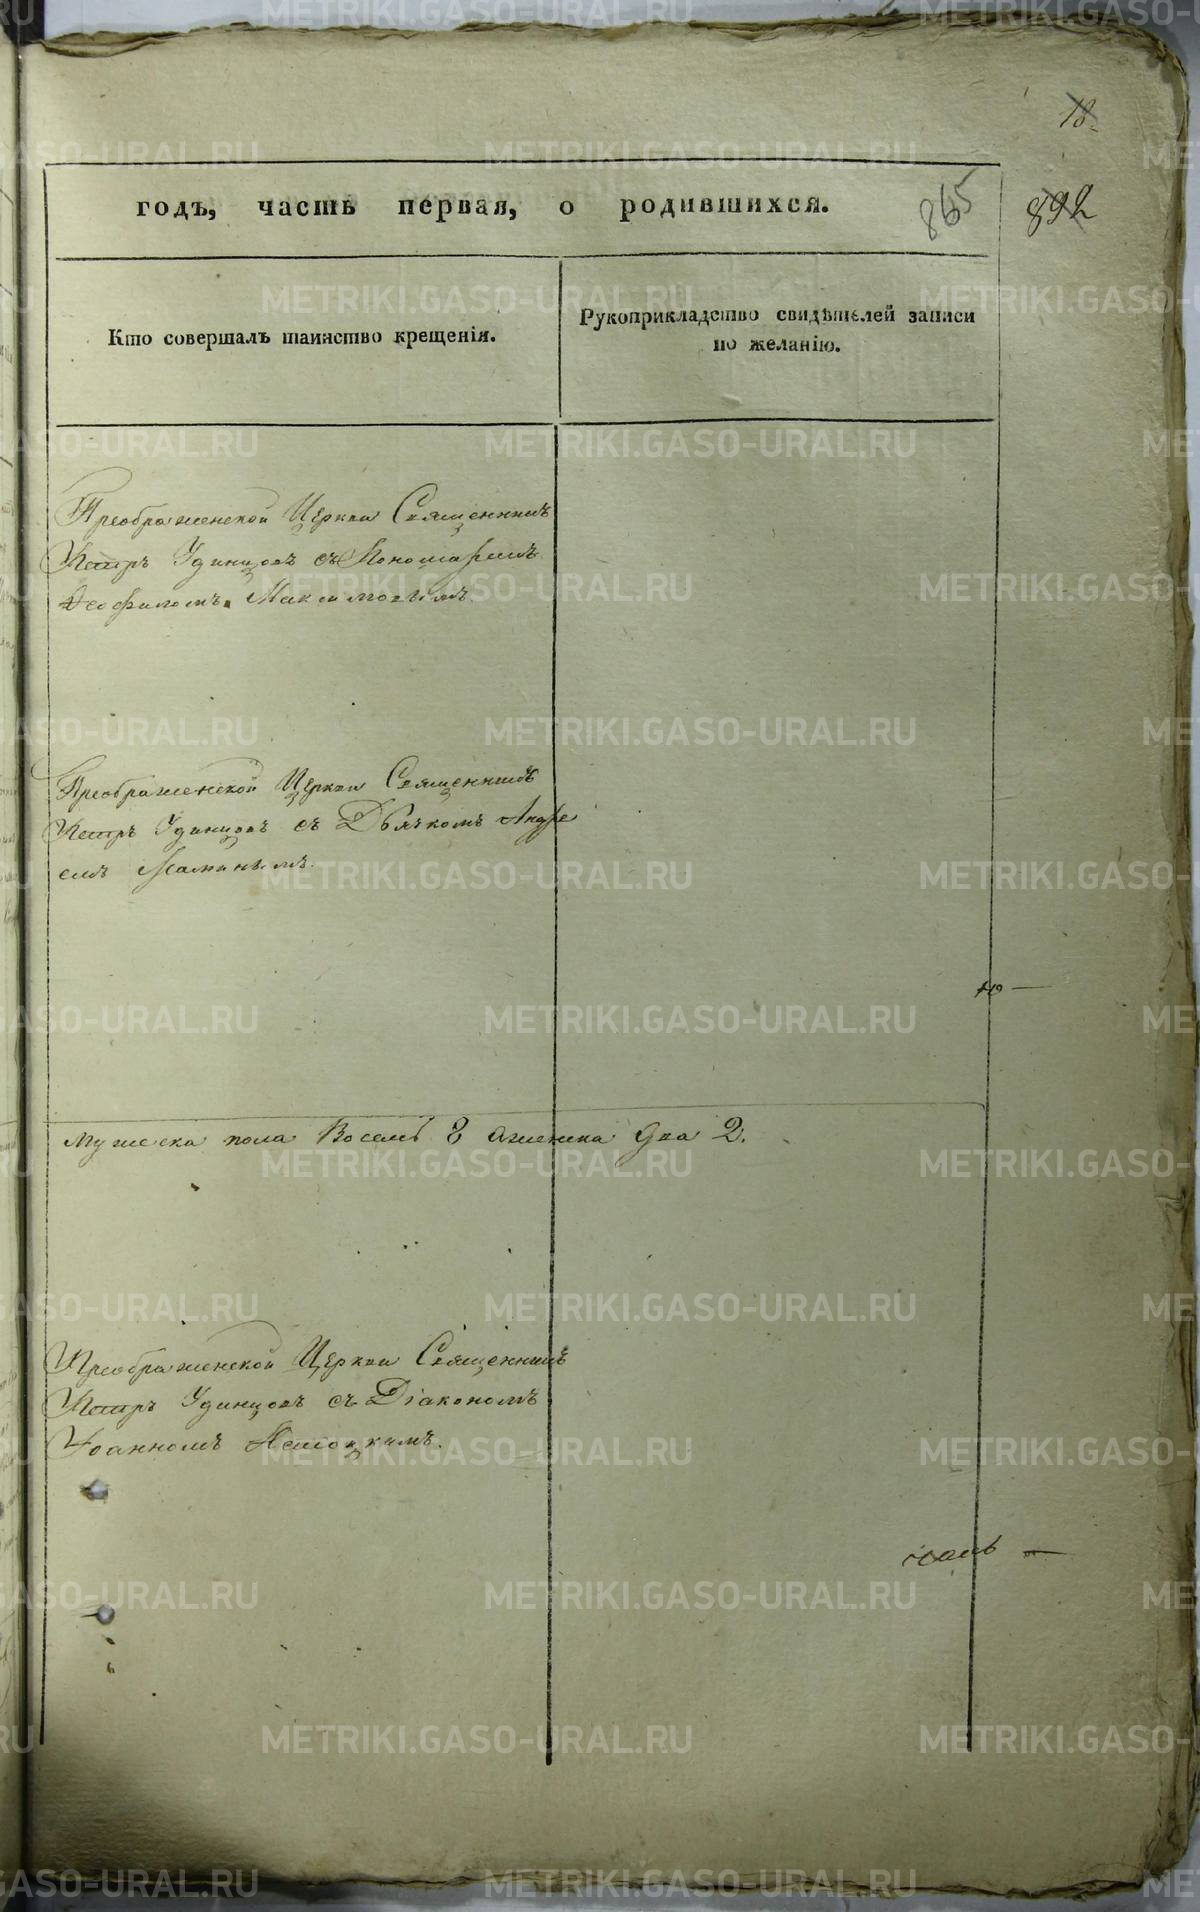 18
годъ, часть первая, о родившихся.
865
892
Кто совершалъ таинство крещенія.
Рукоприкладство свидѣтелей записи
по желанію.
Преображенской Церкви Священникъ
Петръ Удинцовъ съ Пономаремъ
Феофиломъ Максимовымъ
Преображенской Церкви Священникъ
Петръ Удинцовъ съ Дьячкомъ Андре
емъ Маминымъ.
Мужеска пола Восемь 8 аженска два 2.
Преображенской Церкви Священникъ
Петръ Удинцовъ съ Діакономъ
Іоанномъ
METRIKI.GASO-URAL.RU